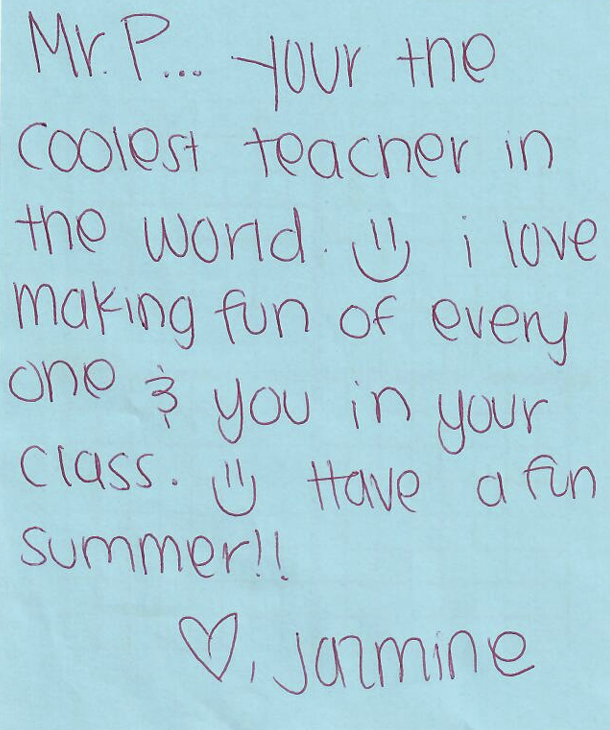 Mr. P... your the
coolest teacher in
the world. Ü i love
making fun of every
one & you in your
class. Ü Have a fun
summer!!
♡, Jazmine